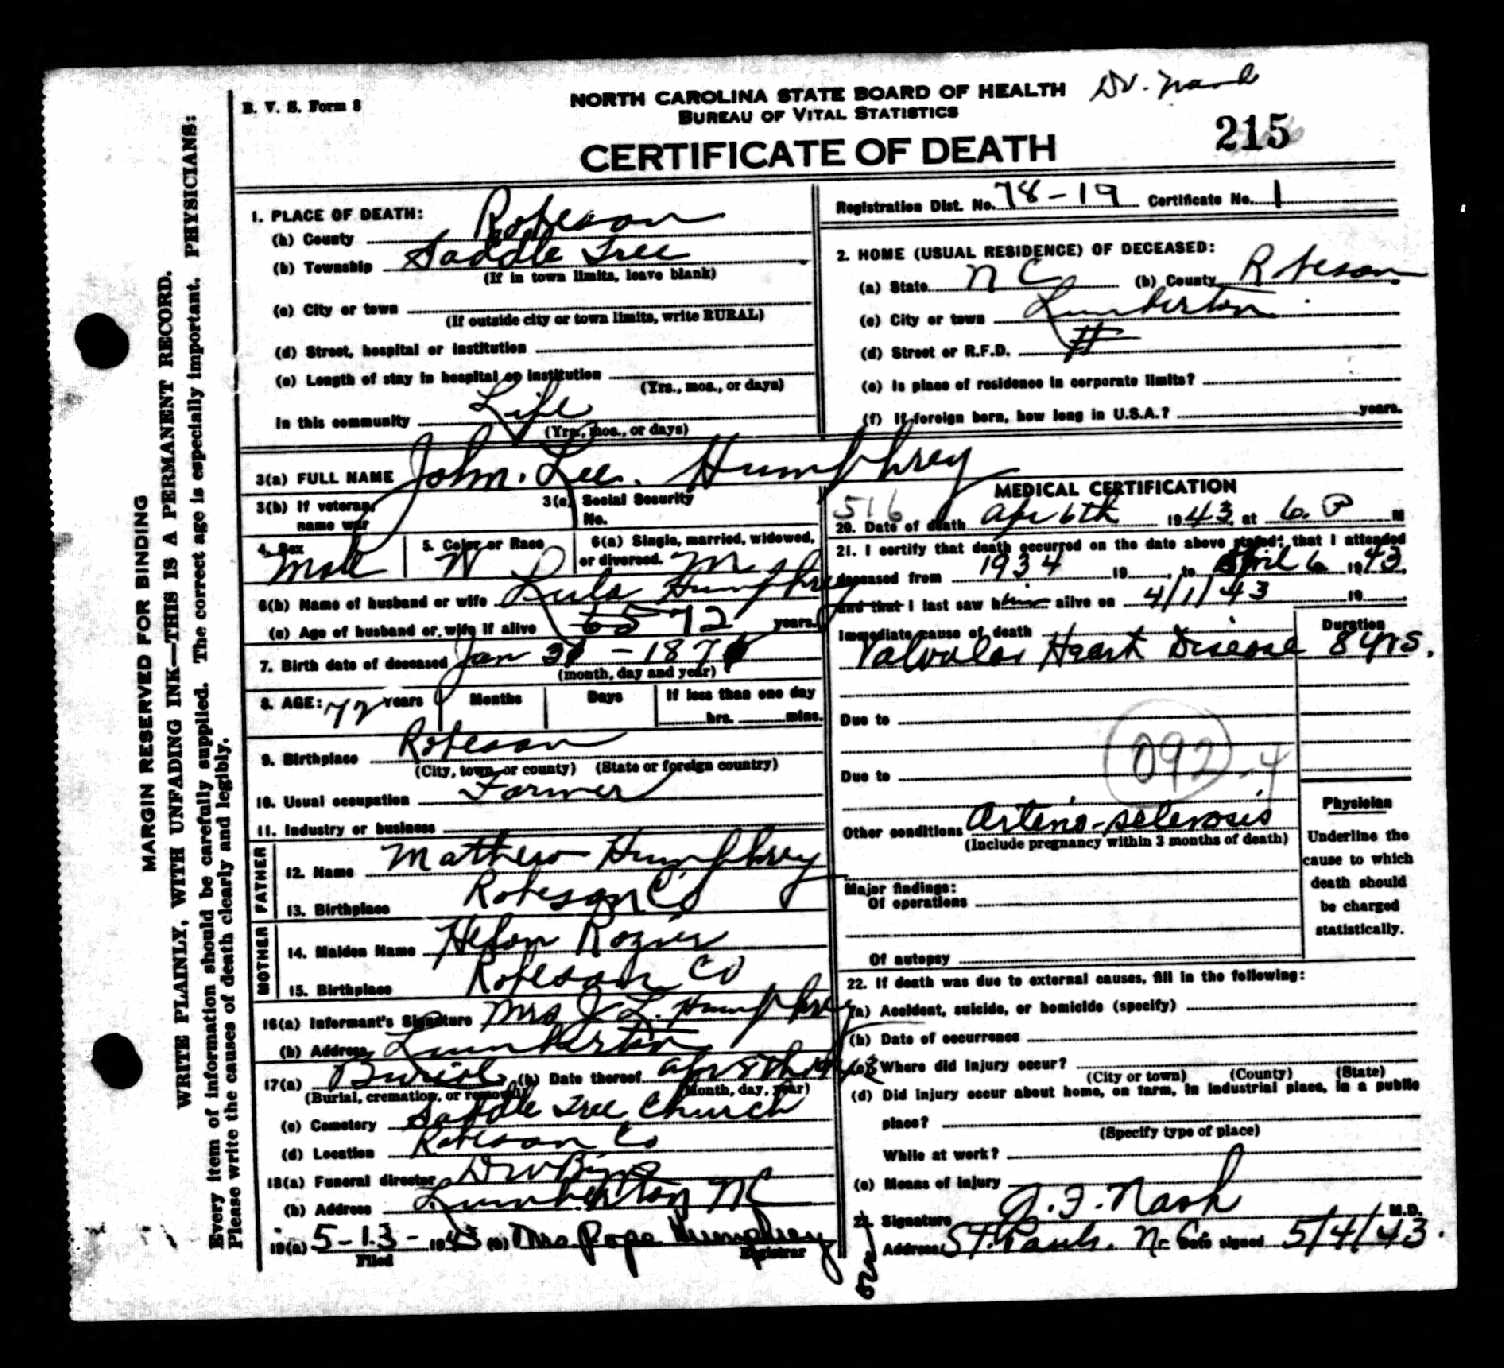 B. V. S. Form 8
NORTH CAROLINA STATE BOARD OF HEALTH
BUREAU OF VITAL STATISTICS
CERTIFICATE OF DEATH
Dr. Nash
215
MARGIN RESERVED FOR BINDING
WRITE PLAINLY, WITH UNFADING INK—THIS IS A PERMANENT RECORD.
Every item of information should be carefully supplied. The correct age is especially important. PHYSICIANS:
Please write the causes of death clearly and legibly.
1. PLACE OF DEATH:
(a) County Robeson
(b) Township Saddle Tree
(If in town limits, leave blank)
(c) City or town
(If outside city or town limits, write RURAL)
(d) Street, hospital or institution
(e) Length of stay in hospital or institution
(Yrs., mos., or days)
In this community Life
(Yrs., mos., or days)
Registration Dist. No. 78-19 Certificate No. 1
2. HOME (USUAL RESIDENCE) OF DECEASED:
(a) State N C (b) County Robeson
(c) City or town Lumberton
(d) Street or R.F.D. #
(e) Is place of residence in corporate limits?
(f) If foreign born, how long in U.S.A.? years.
3(a) FULL NAME John. Lee. Humphrey
3(b) If veteran, name war
3(c) Social Security No.
4. Sex Male
5. Color or Race W
6(a) Single, married, widowed, or divorced. M
6(b) Name of husband or wife Lula Humphrey
(c) Age of husband or wife if alive 72 years.
7. Birth date of deceased Jan 187
(month, day and year)
8. AGE: 72 years Months Days If less than one day
hrs. mins.
9. Birthplace Robeson
(City, town, or county) (State or foreign country)
10. Usual occupation Farmer
11. Industry or business
FATHER
12. Name Mathew Humphrey
13. Birthplace Robeson Co
MOTHER
14. Maiden Name Rozier
15. Birthplace Robeson Co
16(a) Informant's Signature Mrs J. L. Humphrey
(b) Address Lumberton
17(a) Burial (b) Date thereof Apr 8th 1943
(Burial, cremation, or removal) (Month, day, year)
(c) Cemetery Saddle Tree Church
(d) Location Robeson Co
18(a) Funeral director
(b) Address Lumberton NC
19(a) 5-13-1943 (b) Mrs Pope Humphrey
Filed Registrar
516
MEDICAL CERTIFICATION
20. Date of death Apr 6th 1943 at 6. P M
21. I certify that death occurred on the date above stated; that I attended
deceased from 1934 19 to April 6 1943,
and that I last saw him alive on 4/1/43 19
Immediate cause of death
Duration
Valvular Heart Disease 8 yrs.
Due to
Due to
092.4
Other conditions Arterio-sclerosis
(Include pregnancy within 3 months of death)
Major findings:
Of operations
Of autopsy
Physician
Underline the
cause to which
death should
be charged
statistically.
22. If death was due to external causes, fill in the following:
(a) Accident, suicide, or homicide (specify)
(b) Date of occurrence
(c) Where did injury occur?
(City or town) (County) (State)
(d) Did injury occur about home, on farm, in industrial place, in a public
place?
(Specify type of place)
While at work?
(e) Means of injury
23. Signature J. F. Nash M.D.
Address St. Pauls. N. C. Date signed 5/4/43.